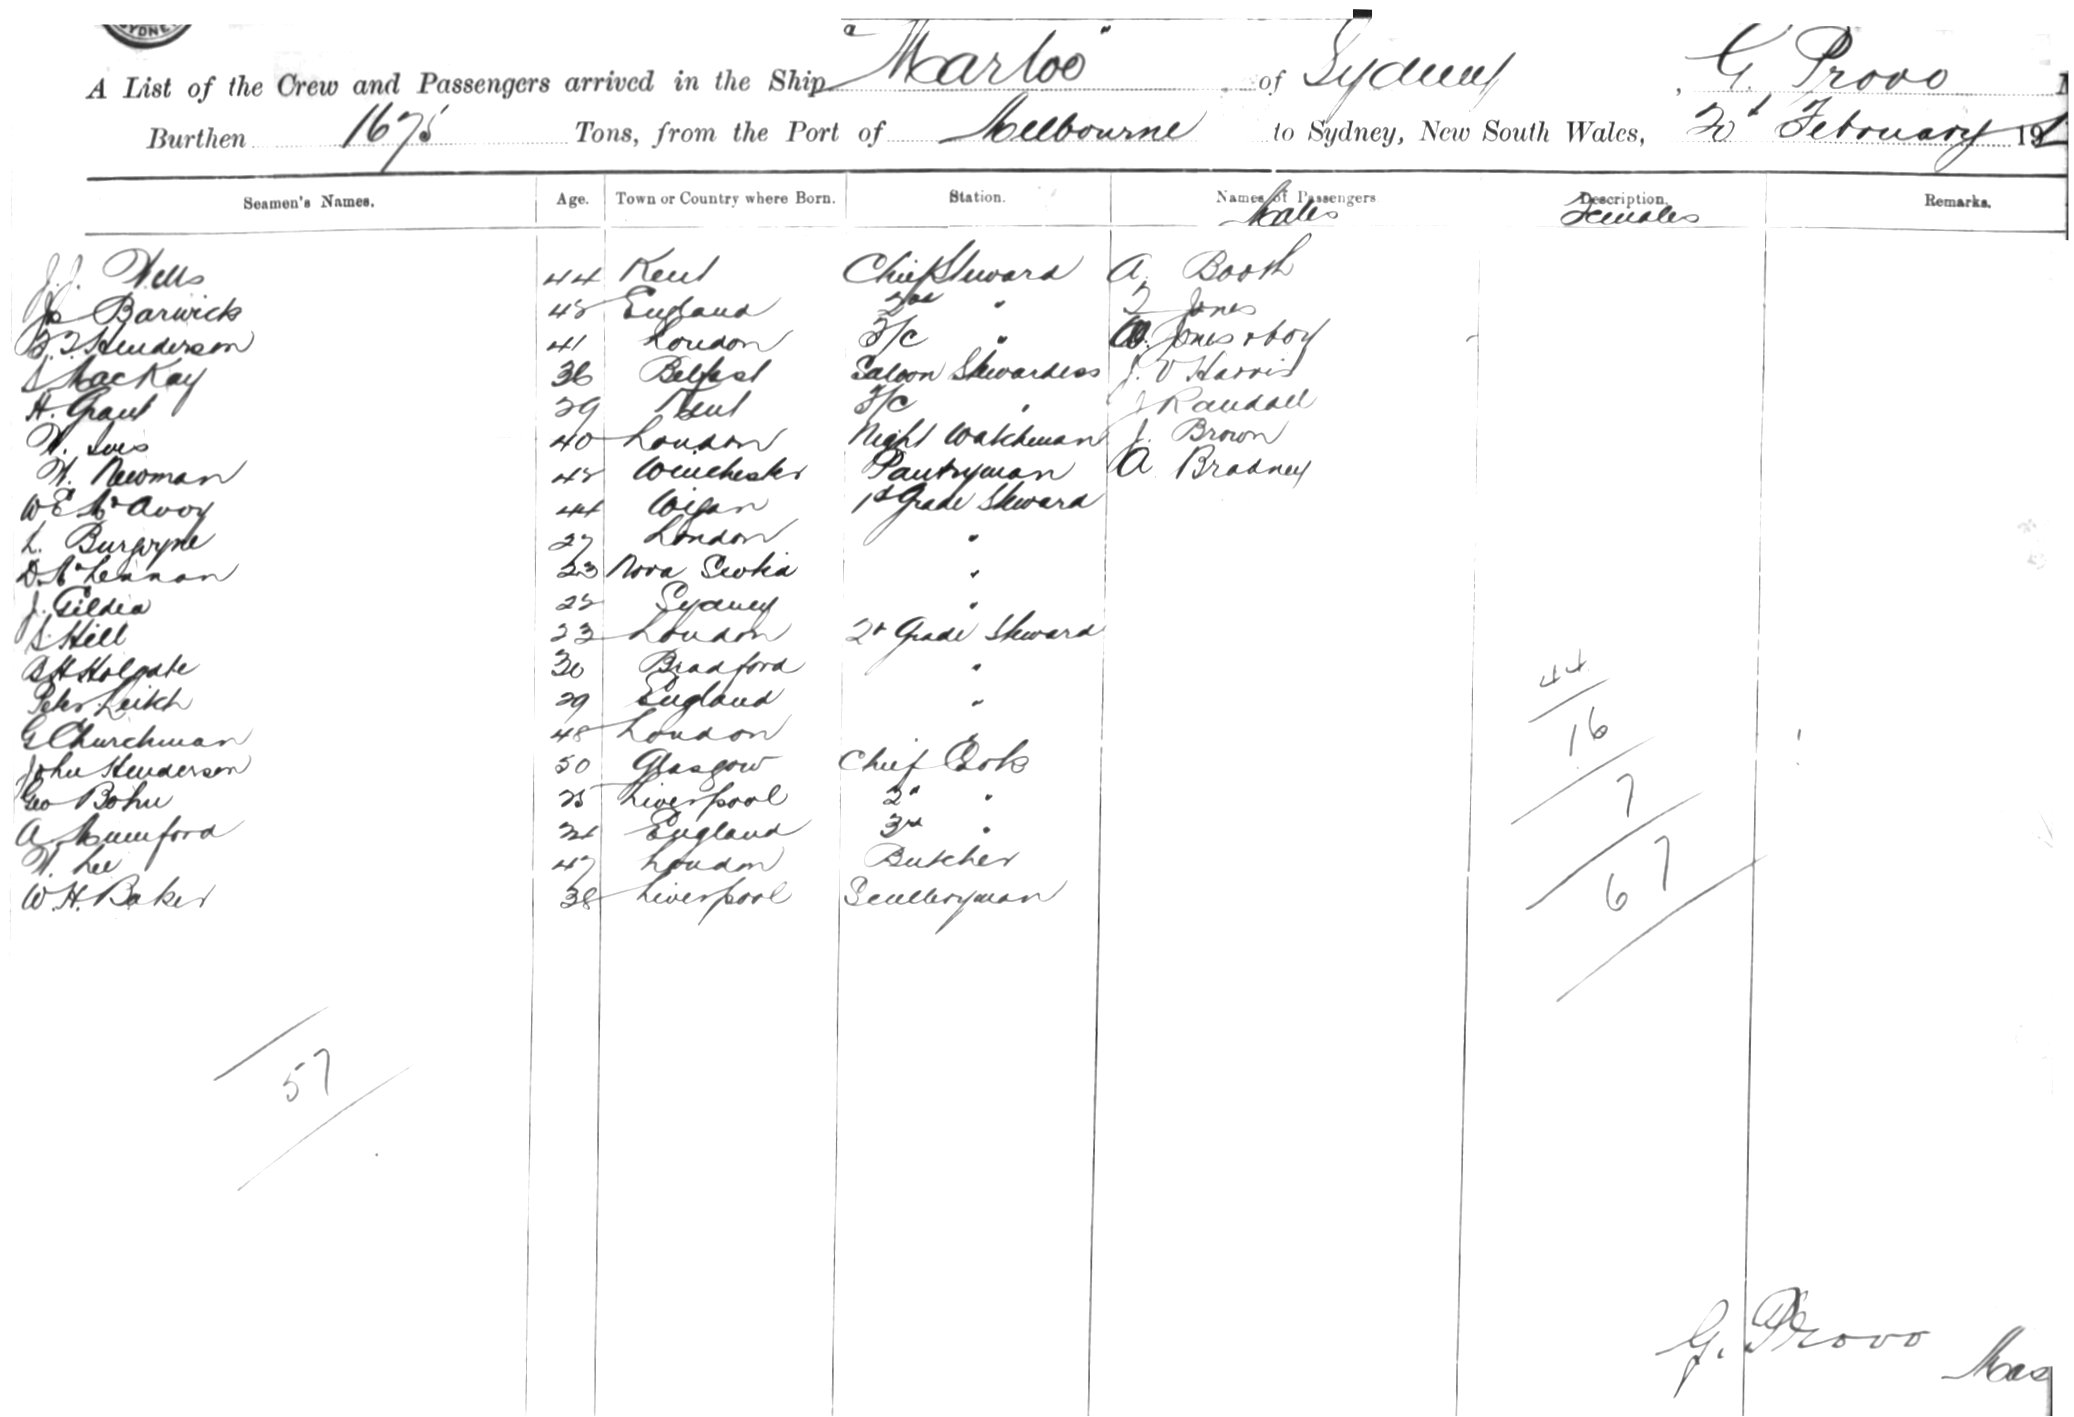 SYDNEY
A List of the Crew and Passengers arrived in the Ship "Marloo" of Sydney, G. Provo
Burthen 1675 Tons, from the Port of Melbourne to Sydney, New South Wales, 2nd February 191
Seamen's Names. Age. Town or Country where Born. Station. Names of Passengers Description. Remarks.
Males Females
J. J. Wells 44 Kent Chief Steward A. Booth
Barwick England 2nd " Jones
Henderson 41 London F/C " Jones & boy
S MacKay 36 Belfast Saloon Stewardess J. V Harris
H. Grant 29 Kent F/C " J Randall
W. Ives 40 London Night Watchman J. Brown
W. Newman Winchester Pantryman A Bradney
W E McAvoy 44 Wigan 1st Grade Steward
L. Burgoyne 27 London "
D. McLennan 23 Nova Scotia "
J. Gildea Sydney "
S. Hill 23 London 2d Grade Steward
B H Holgate 30 Bradford "
Peter Leitch 29 England "
G Churchman 48 London "
John Henderson 50 Glasgow Chief Cook
Geo Bohn 25 Liverpool 2d "
A. Mumford England 3rd "
W. Lee 47 London Butcher
W. H. Baker 38 Liverpool Sculleryman
44
16
7
67
57
G. Provo Mas